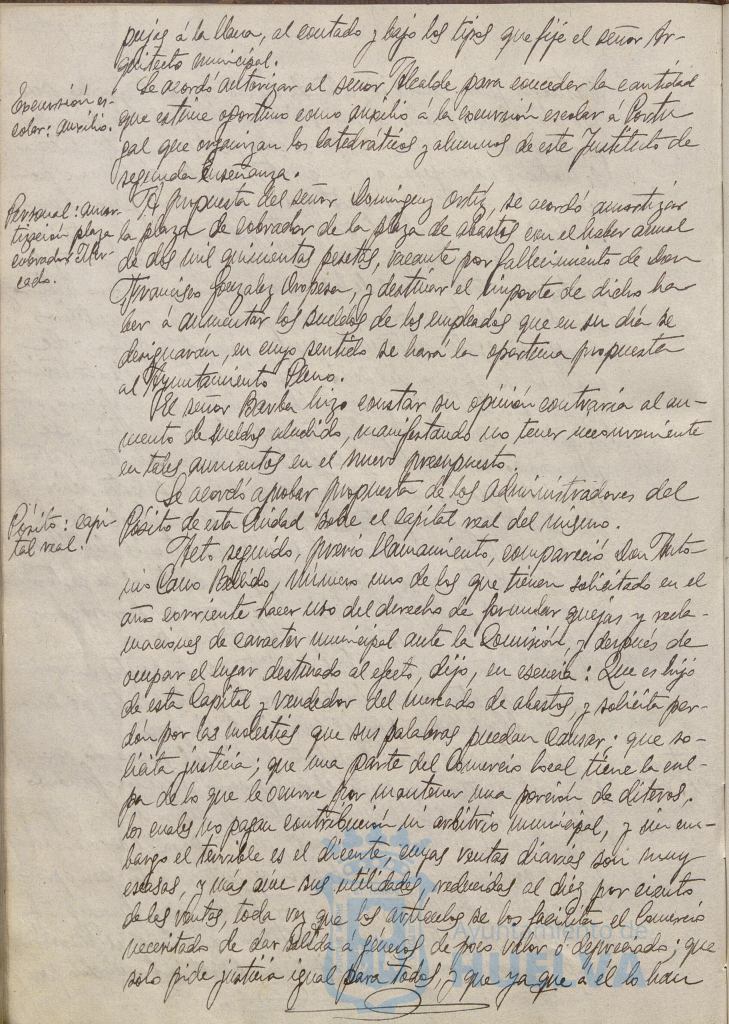 pujas á la llana, al contado y bajo los tipos que fije el señor Ar-
quitecto municipal.
Excursión es-
colar: auxilio.
Se acordó autorizar al señor Alcalde para conceder la cantidad
que estime oportuno como auxilio á la excursión escolar á Portu
gal que organizan los Catedráticos y alumnos de este Instituto de
segunda Enseñanza.
Personal: amor-
tización plaza
cobrador Mer-
cado.
A propuesta del señor Dominguez Ortiz, se acordó amortizar
la plaza de cobrador de la plaza de abastos con el haber anual
de dos mil quinientas pesetas, vacante por fallecimiento de Don
Francisco Gonzalez Oropesa, y destinar el importe de dicho ha
ber á aumentar los sueldos de los empleados que en su dia se
designarán, en cuyo sentido se hará la oportuna propuesta
al Ayuntamiento Pleno.
El señor Barba hizo constar su opinión contraria al au-
mento de sueldos aludido, manifestando no tener inconveniente
en tales aumentos en el nuevo presupuesto.
Pósito: capi-
tal real.
Se acordó aprobar propuesta de los Administradores del
Pósito de esta Ciudad sobre el capital real del mismo.
Acto seguido, previo llamamiento, compareció Don Anto-
nio Cano Bellido, número uno de los que tienen solicitado en el
año corriente hacer uso del derecho de formular quejas y recla-
maciones de caracter municipal ante la Comisión, y después de
ocupar el lugar destinado al efecto, dijo, en esencia: Que es hijo
de esta Capital y vendedor del mercado de abastos, y solicita per-
dón por las molestias que sus palabras puedan causar; que so-
licita justicia; que una parte del Comercio local tiene la cul-
pa de lo que le ocurre por mantener una porción de diteros,
los cuales no pagan contribución ni arbitrio municipal, y sin em-
bargo el terrible es el dicente, cuyas ventas diarias son muy
escasas, y más aún sus utilidades, reducidas al diez por ciento
de las ventas, toda vez que los artículos se los facilita el Comercio
necesitado de dar salida á géneros de poco valor ó depreciado; que
solo pide justicia igual para todos, y que ya que á él lo han
Ayuntamiento de
HUELVA